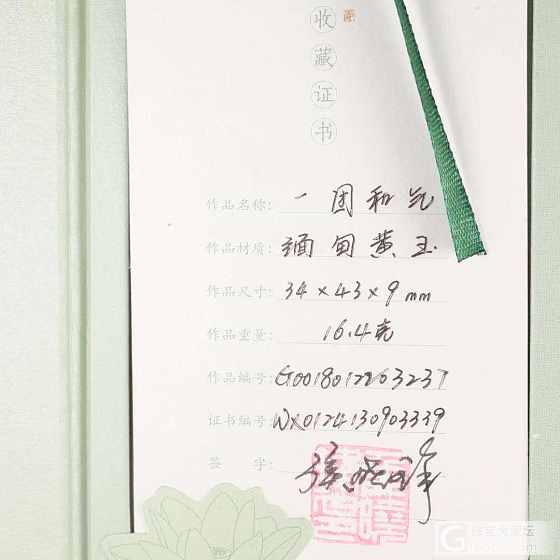 收藏证书
作品名称：一团和气
作品材质：缅甸黄玉
作品尺寸：34×43×9mm
作品重量：16.4克
作品编号：G0018012263237
证书编号：WX0124130903339
签 字：